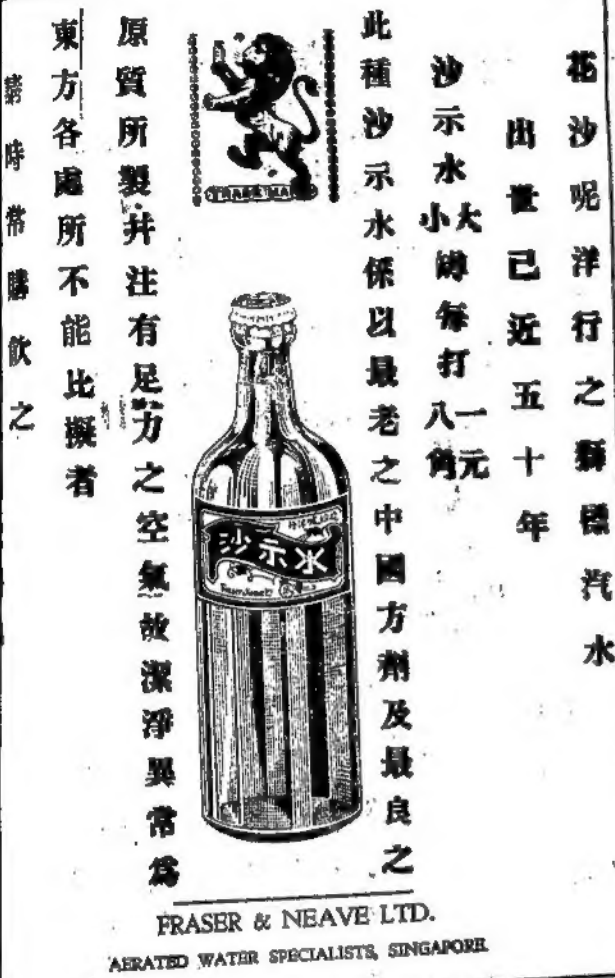 花沙呢洋行之獅標汽水
出世已近五十年
沙示水大小罇每打一元八角
此種沙示水係以最老之中國方劑及最良之
TRADE MARK
原質所製并注有足力之空氣故潔淨異常爲
東方各處所不能比擬者
請時常購飲之
沙示水
FRASER & NEAVE LTD.
AERATED WATER SPECIALISTS, SINGAPORE.